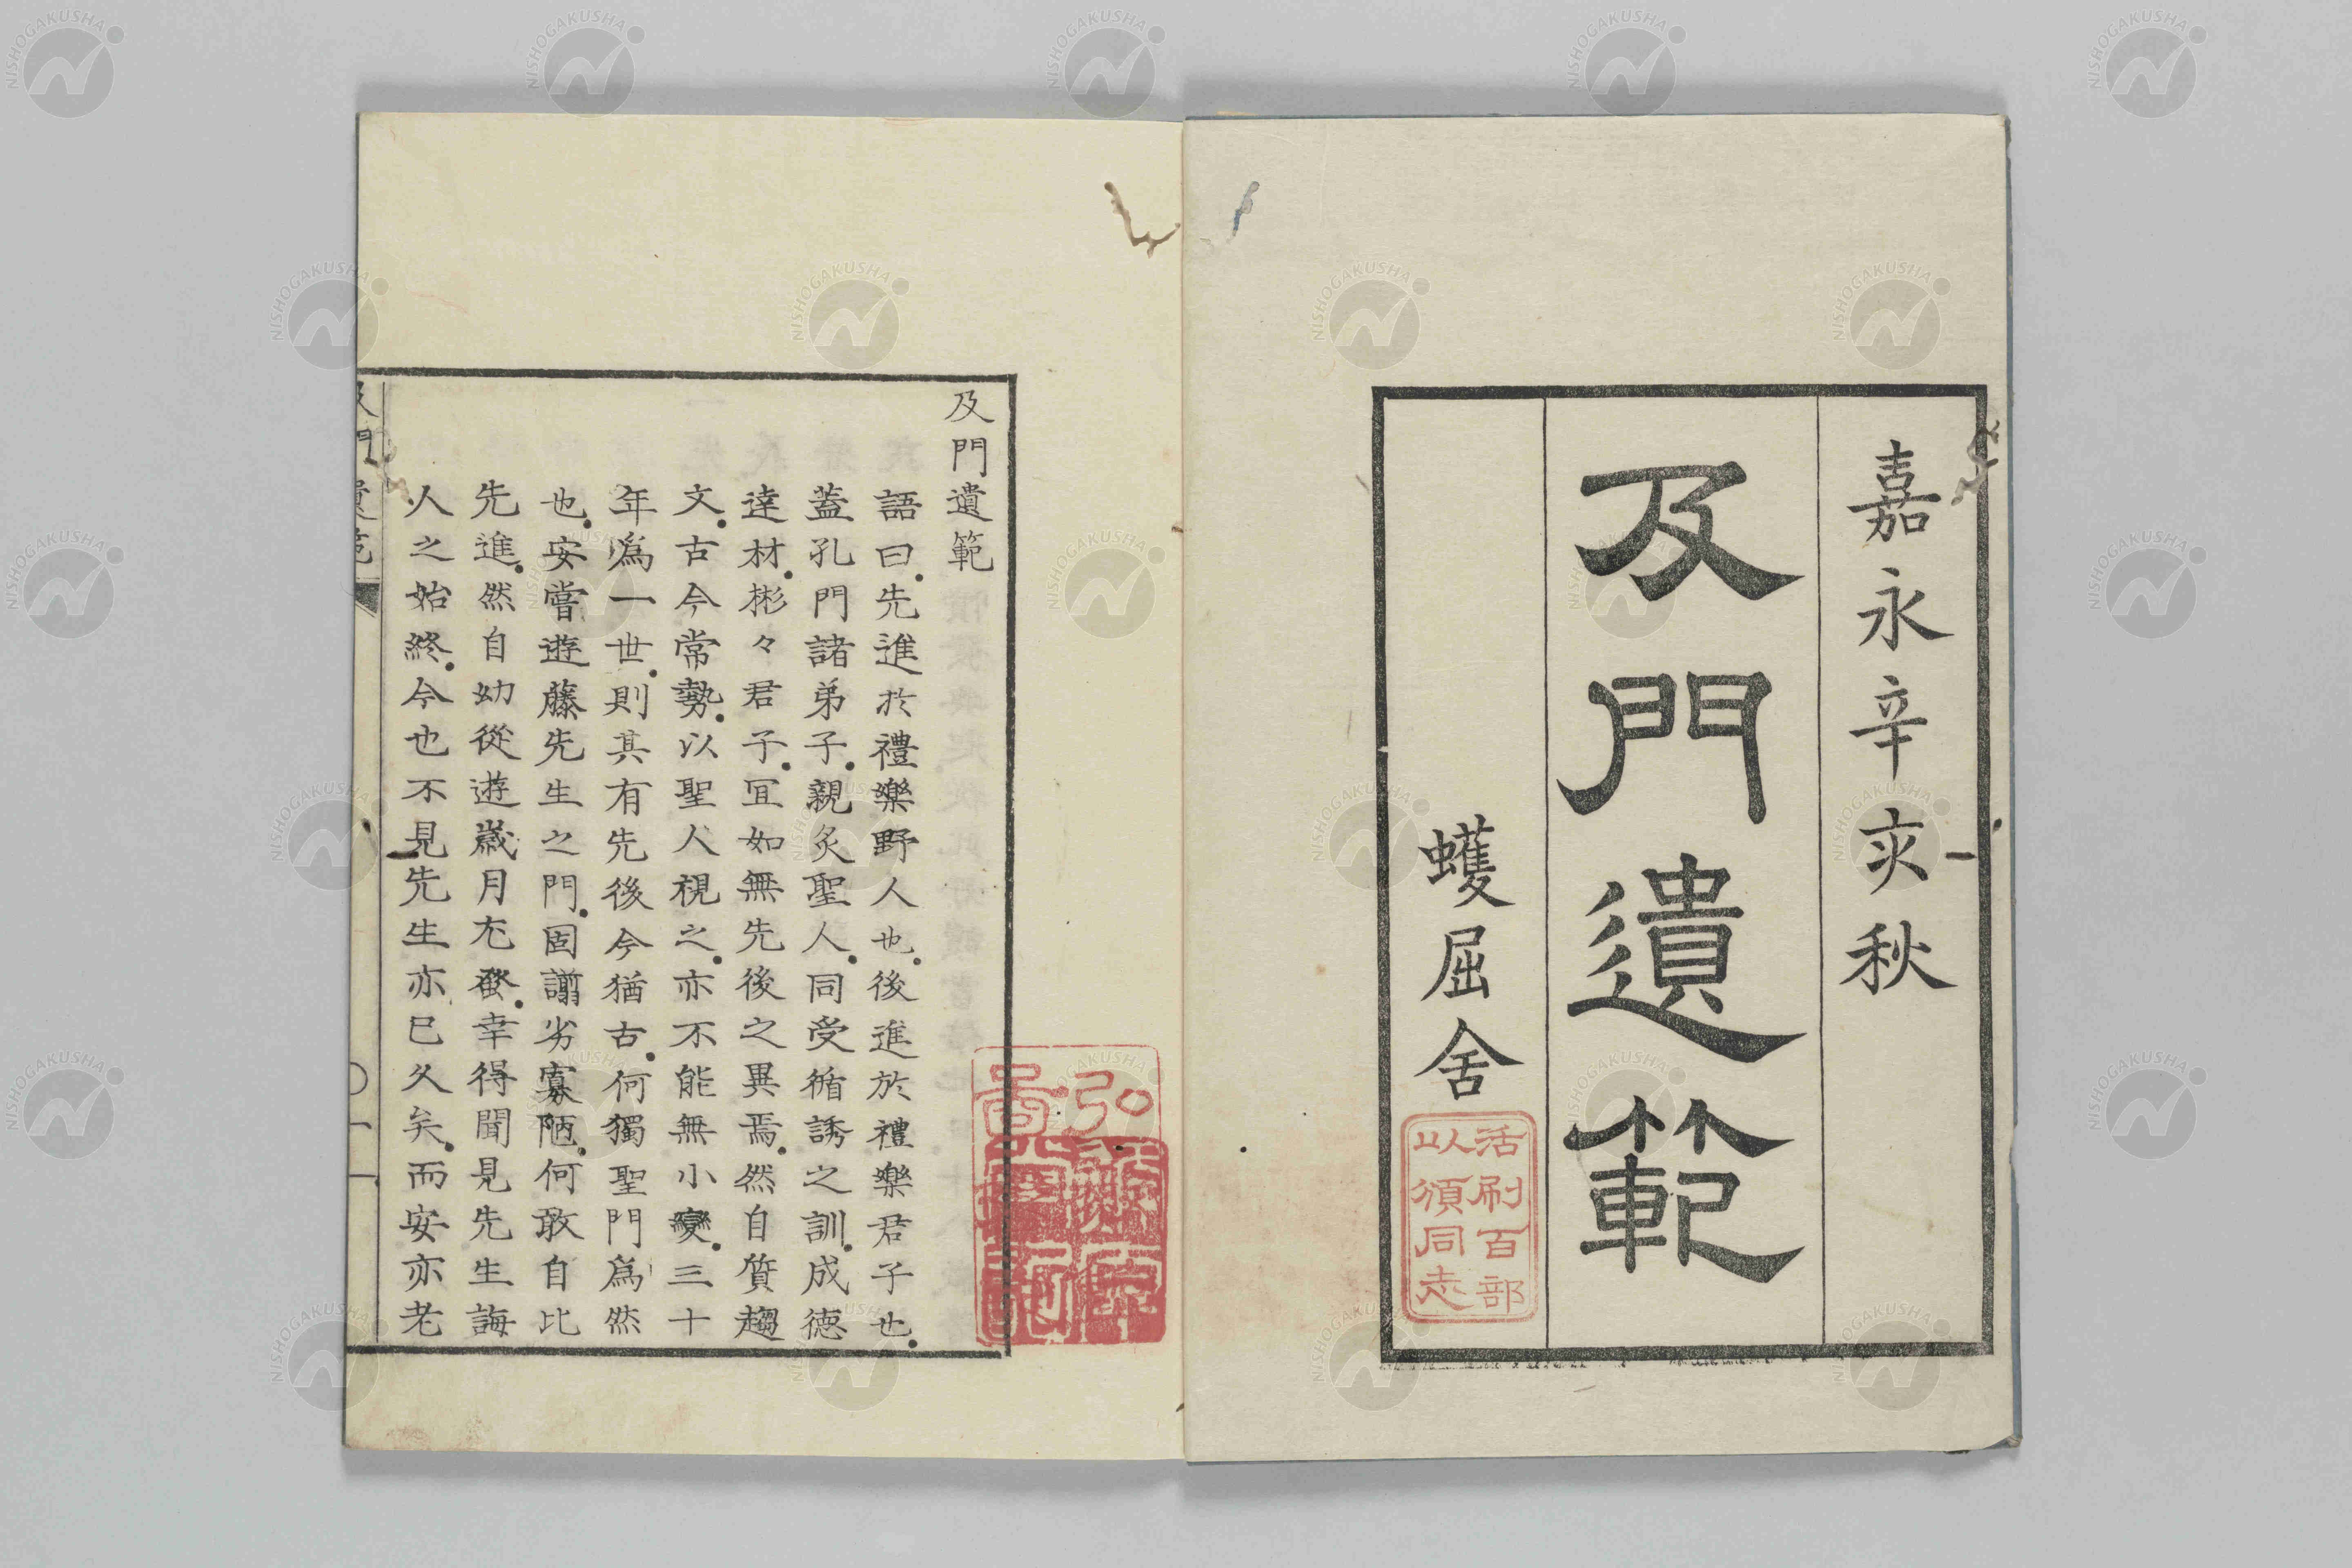 嘉永辛亥秋
及門遺範
蠖屈舍
活刷百部
以頒同志
及門遺範
語曰先進於禮樂野人也後進於禮樂君子也
蓋孔門諸弟子親炙聖人同受循誘之訓成德
達材彬々君子宜如無先後之異焉然自質趨
文古今常勢以聖人視之亦不能無小變三十
年爲一世則其有先後今猶古何獨聖門爲然
也安嘗遊藤先生之門固譾劣寡陋何敢自比
先進然自幼從遊歲月尤發幸得聞見先生誨
人之始終今也不見先生亦已久矣而安亦老
及門遺範
NISHOGAKUSHA